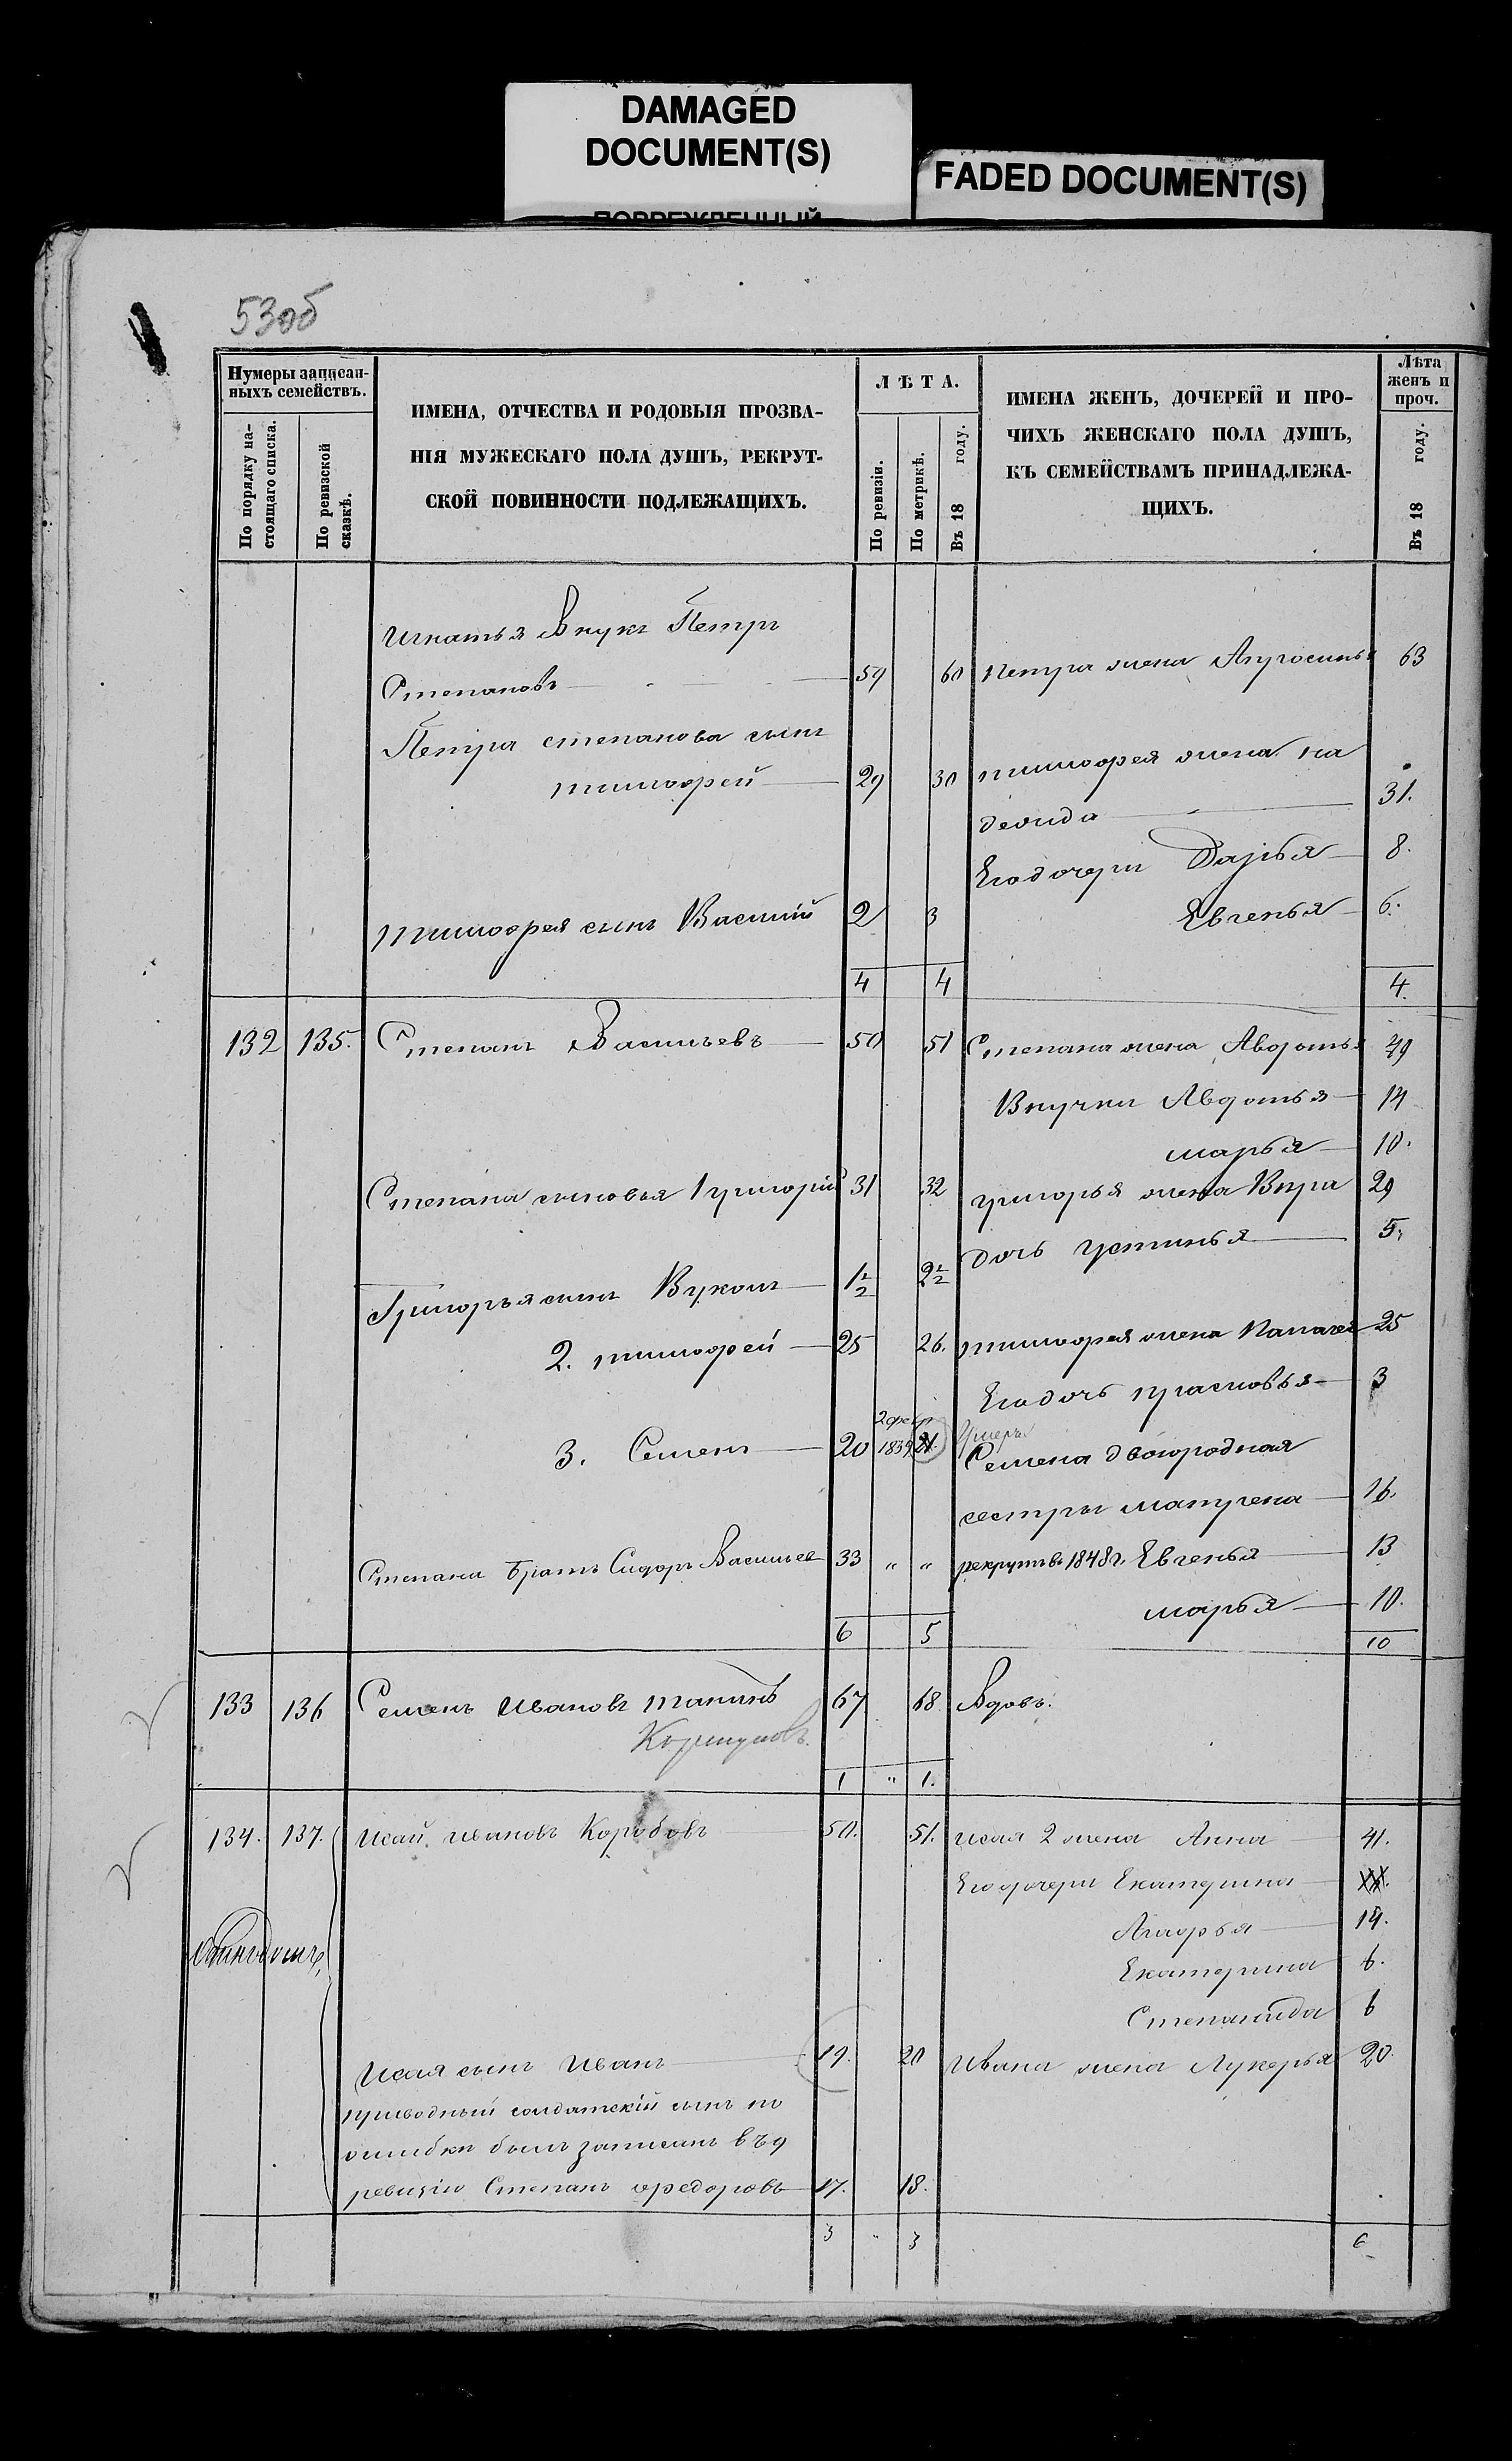 DAMAGED
DOCUMENT(S)
FADED DOCUMENT(S)
53об
Нумеры записан-
ныхъ семействъ.
По порядку на-
стоящаго списка.
По ревизской
сказкѣ.
ИМЕНА, ОТЧЕСТВА И РОДОВЫЯ ПРОЗВА-
НІЯ МУЖЕСКАГО ПОЛА ДУШЪ, РЕКРУТ-
СКОЙ ПОВИННОСТИ ПОДЛЕЖАЩИХЪ.
ЛѢТА.
По ревизіи.
По метрикѣ.
Въ 18 году.
ИМЕНА ЖЕНЪ, ДОЧЕРЕЙ И ПРО-
ЧИХЪ ЖЕНСКАГО ПОЛА ДУШЪ,
КЪ СЕМЕЙСТВАМЪ ПРИНАДЛЕЖА-
ЩИХЪ.
Лѣта
женъ и
проч.
Въ 18 году.
Игнатья Внукъ Петръ
Степановъ 59 60 Петра жена Апросинья 63
Петра степанова сынъ
тимофей 29 30 тимофея жена на
дежида 31.
Его дочери Дарья 8.
тимофея сынъ Василій 2 3 Евгенья 6.
4 4 4.
132 135. Степанъ Васильевъ 50 51 Степана жена Авдотья 49
Внучки Авдотья 14
марья 10.
Степана сыновья Григорій 31 32 григорья жена Вѣра 29
дочь устинья 5.
Григорья сынъ Вуколъ 1 1/2 2 1/2
2. тимофей 25 26. тимофея жена Палагея 25
Его дочь прасковья 3
3. Семенъ 20 1839 21. Умеръ
Семена двоюродная
сестры матрена 16.
Степана братъ Сидоръ Васильев 33 " " рекрутъ въ 1848 г. Евгенья 13
марья 10.
6 5 10
133 136 Семенъ Ивановъ Танинъ 67 68 Вдовъ.
Коршуновъ.
1 " 1.
134. 137. Исай Ивановъ Коробовъ 50. 51. Исая 2 жена Анна 41.
Его дочери Екатерина
Агафья 14.
Екатерина 6.
Степанида 6
Исая сынъ Иванъ 19. 20 Ивана жена Лукерья 20.
приводный солдатскій сынъ по
ошибки былъ записанъ въ 9
ревизію Степанъ федоровъ 17. 18.
3 " 3 6